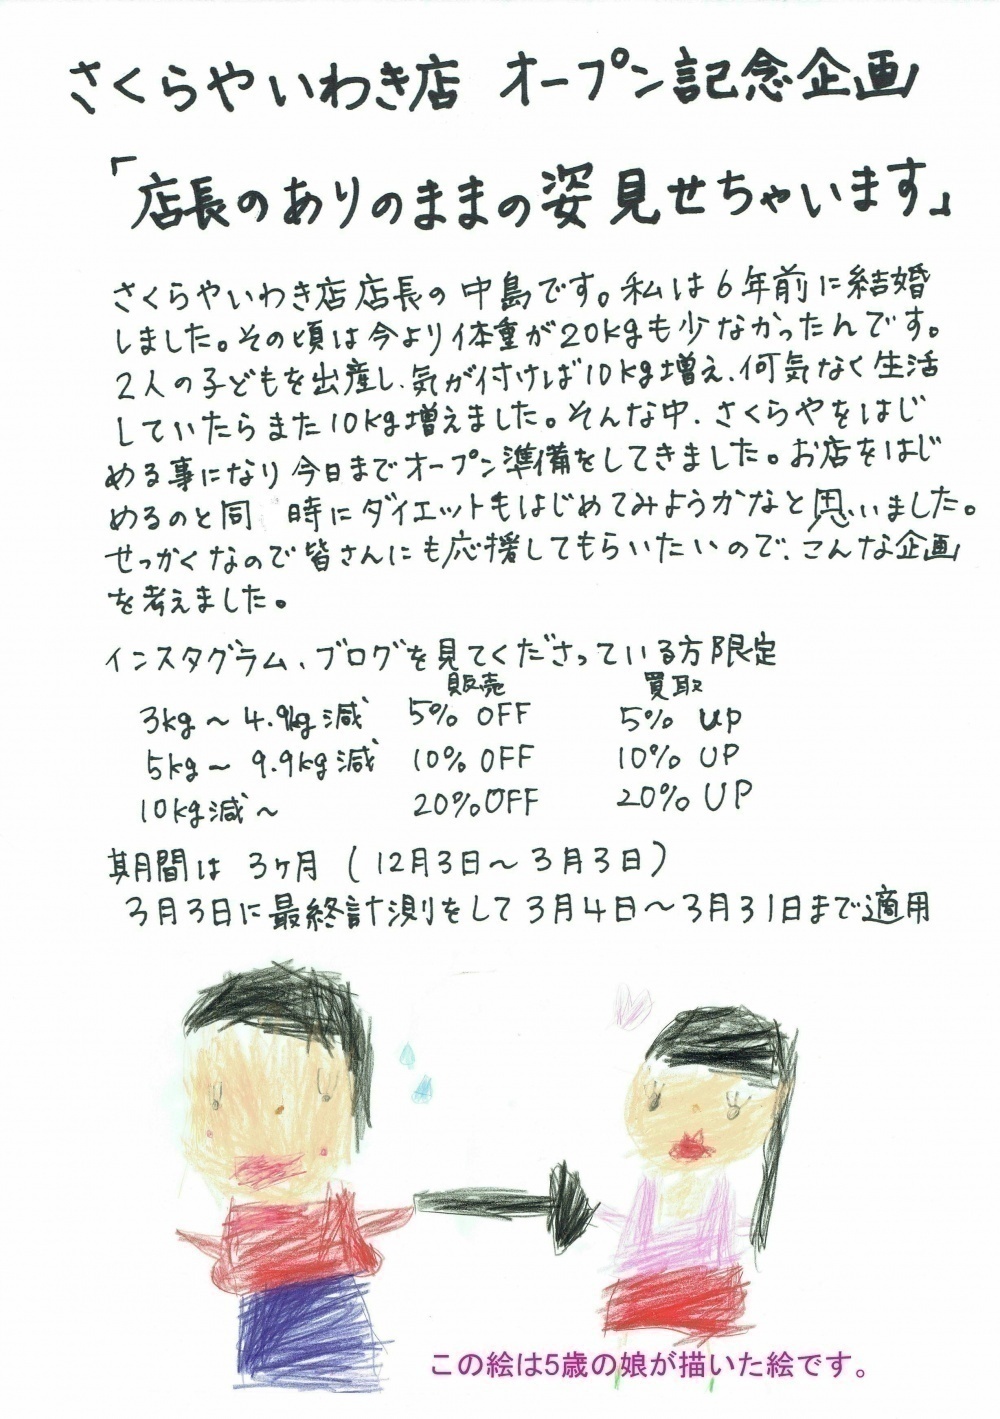 さくらやいわき店 オープン記念企画
「店長のありのままの姿見せちゃいます」
さくらやいわき店店長の中島です。私は6年前に結婚
しました。その頃は今より体重が20kgも少なかったんです。
2人の子どもを出産し、気が付けば10kg増え、何気なく生活
していたらまた10kg増えました。そんな中、さくらやをはじ
める事になり今日までオープン準備をしてきました。お店をはじ
めるのと同 時にダイエットもはじめてみようかなと思いました。
せっかくなので皆さんにも応援してもらいたいので、こんな企画
を考えました。
インスタグラム、ブログを見てくださっている方限定
販売 買取
3kg～4.9kg減 5% OFF 5% UP
5kg～9.9kg減 10% OFF 10% UP
10kg減～ 20%OFF 20% UP
期間は3ヶ月(12月3日～3月3日)
3月3日に最終計測をして3月4日～3月31日まで適用
この絵は5歳の娘が描いた絵です。